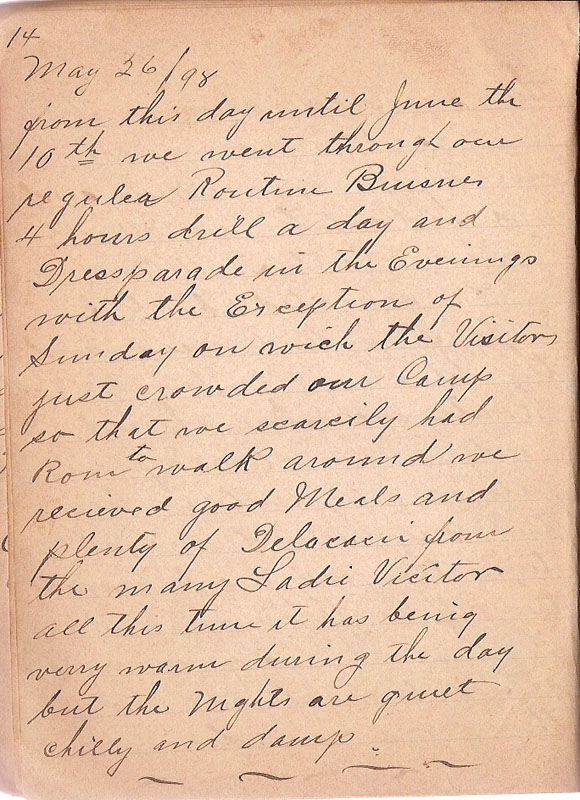 14
May 26/98
from this day until June the
10th we went through our
regulea Routine Buisnes
4 hours drill a day and
Dressparade in the Evenings
with the Exception of
Sunday on wich the Visitors
just crowded our Camp
so that we scarcily had
Rom to walk around we
recieved good Meals and
plenty of Delacacii from
the many Ladie Visitor
all this time it has benig
verry warm during the day
but the Nights are quiet
chilly and damp.